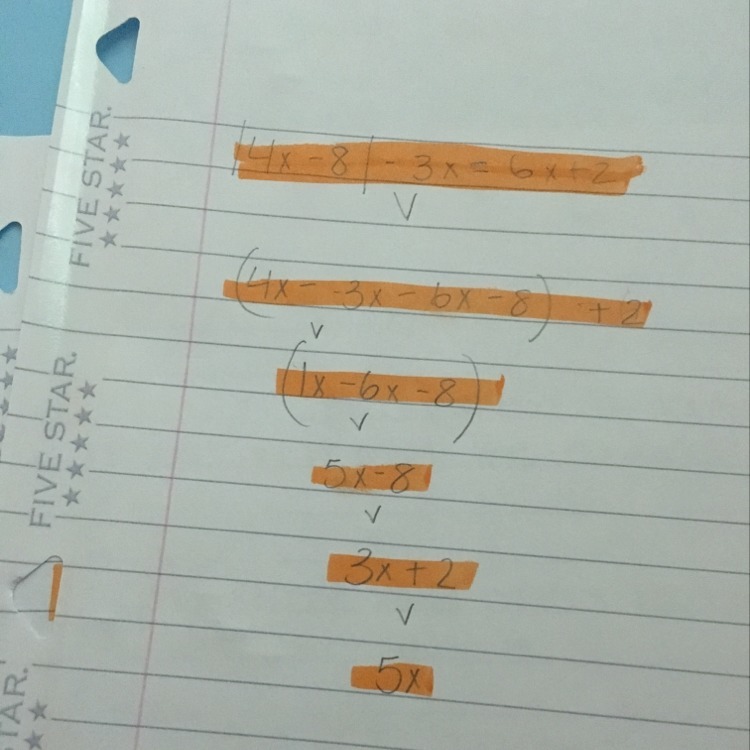 |4x-8|-3x=6x+2
(4x--3x-6x-8)+2
(1x-6x-8)
5x-8
3x+2
5x
FIVE STAR.
FIVE STAR.
TAR.